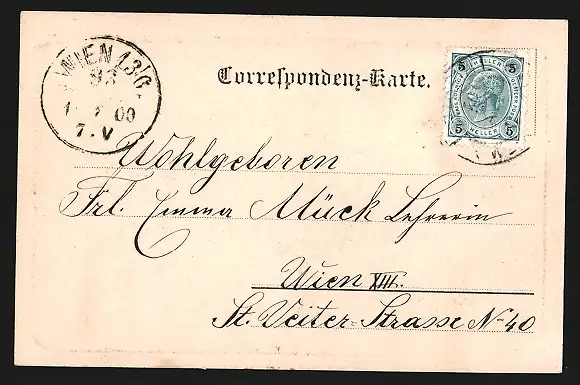 WIEN 13/6.
93
00
7.V
Correspondenz-Karte.
5 5
HELLER
5 5
Wohlgeboren
Frl. Emma Mück Lehrerin
Wien XIII.
St. Veiter-Strasse No 40